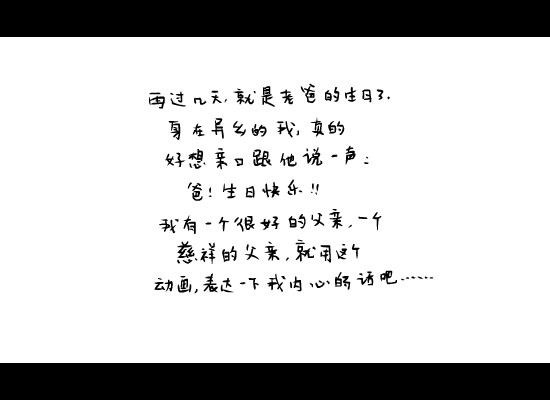 再过几天,就是老爸的生日了.
身在异乡的我,真的
好想亲口跟他说一声:
爸!生日快乐!!
我有一个很好的父亲,一个
慈祥的父亲,就用这个
动画,表达一下我内心的话吧……